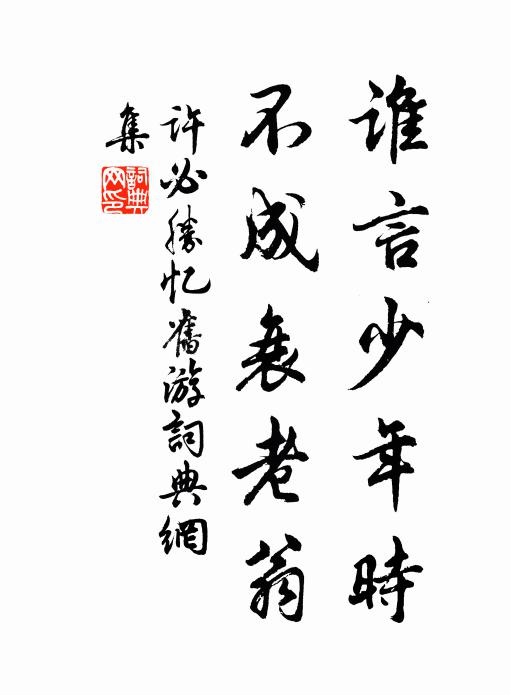 谁言少年時
不成衰老翁
许必勝忆舊游詞典網
集
詞典网印